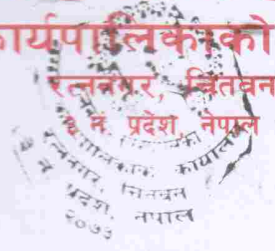 र्यपालिकाको
रत्ननगर, चितवन
३ नं प्रदेश, नेपाल
पालिकाको कार्यालय
रत्ननगर, चितवन
प्रदेश, नेपाल
२०७३